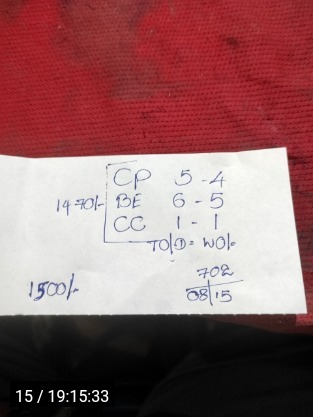 CP 5-4
1470/- BE 6-5
CC 1-1
1500/-
702
08/15
15 / 19:15:33